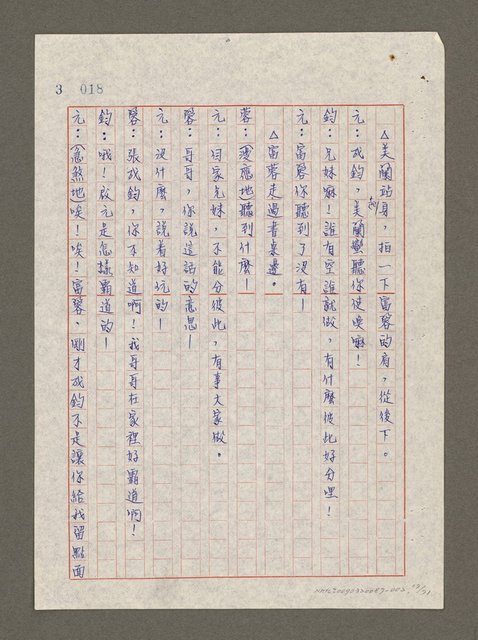 3 018
△美蘭站身，拍一下富蓉的肩，從後下。
元：成鈞，美蘭蠻聽你使喚嘛！
鈞：兄妹嘛！誰有空誰就做，有什麼彼此好分哩！
元：富蓉你聽到了沒有—
△富蓉走過書桌邊。
蓉：(漫應地)聽到什麼—
元：自家兄妹，不能分彼此，有事大家做。
蓉：哥哥，你說這話的意思—
元：沒什麼，說着好玩的—
蓉：張成鈞，你不知道啊！我哥哥在家裡好霸道啊！
鈞：哦！啟元是怎樣霸道的—
元：(忽然地)唉！唉！富蓉，剛才成鈞不是讓你給我留點面